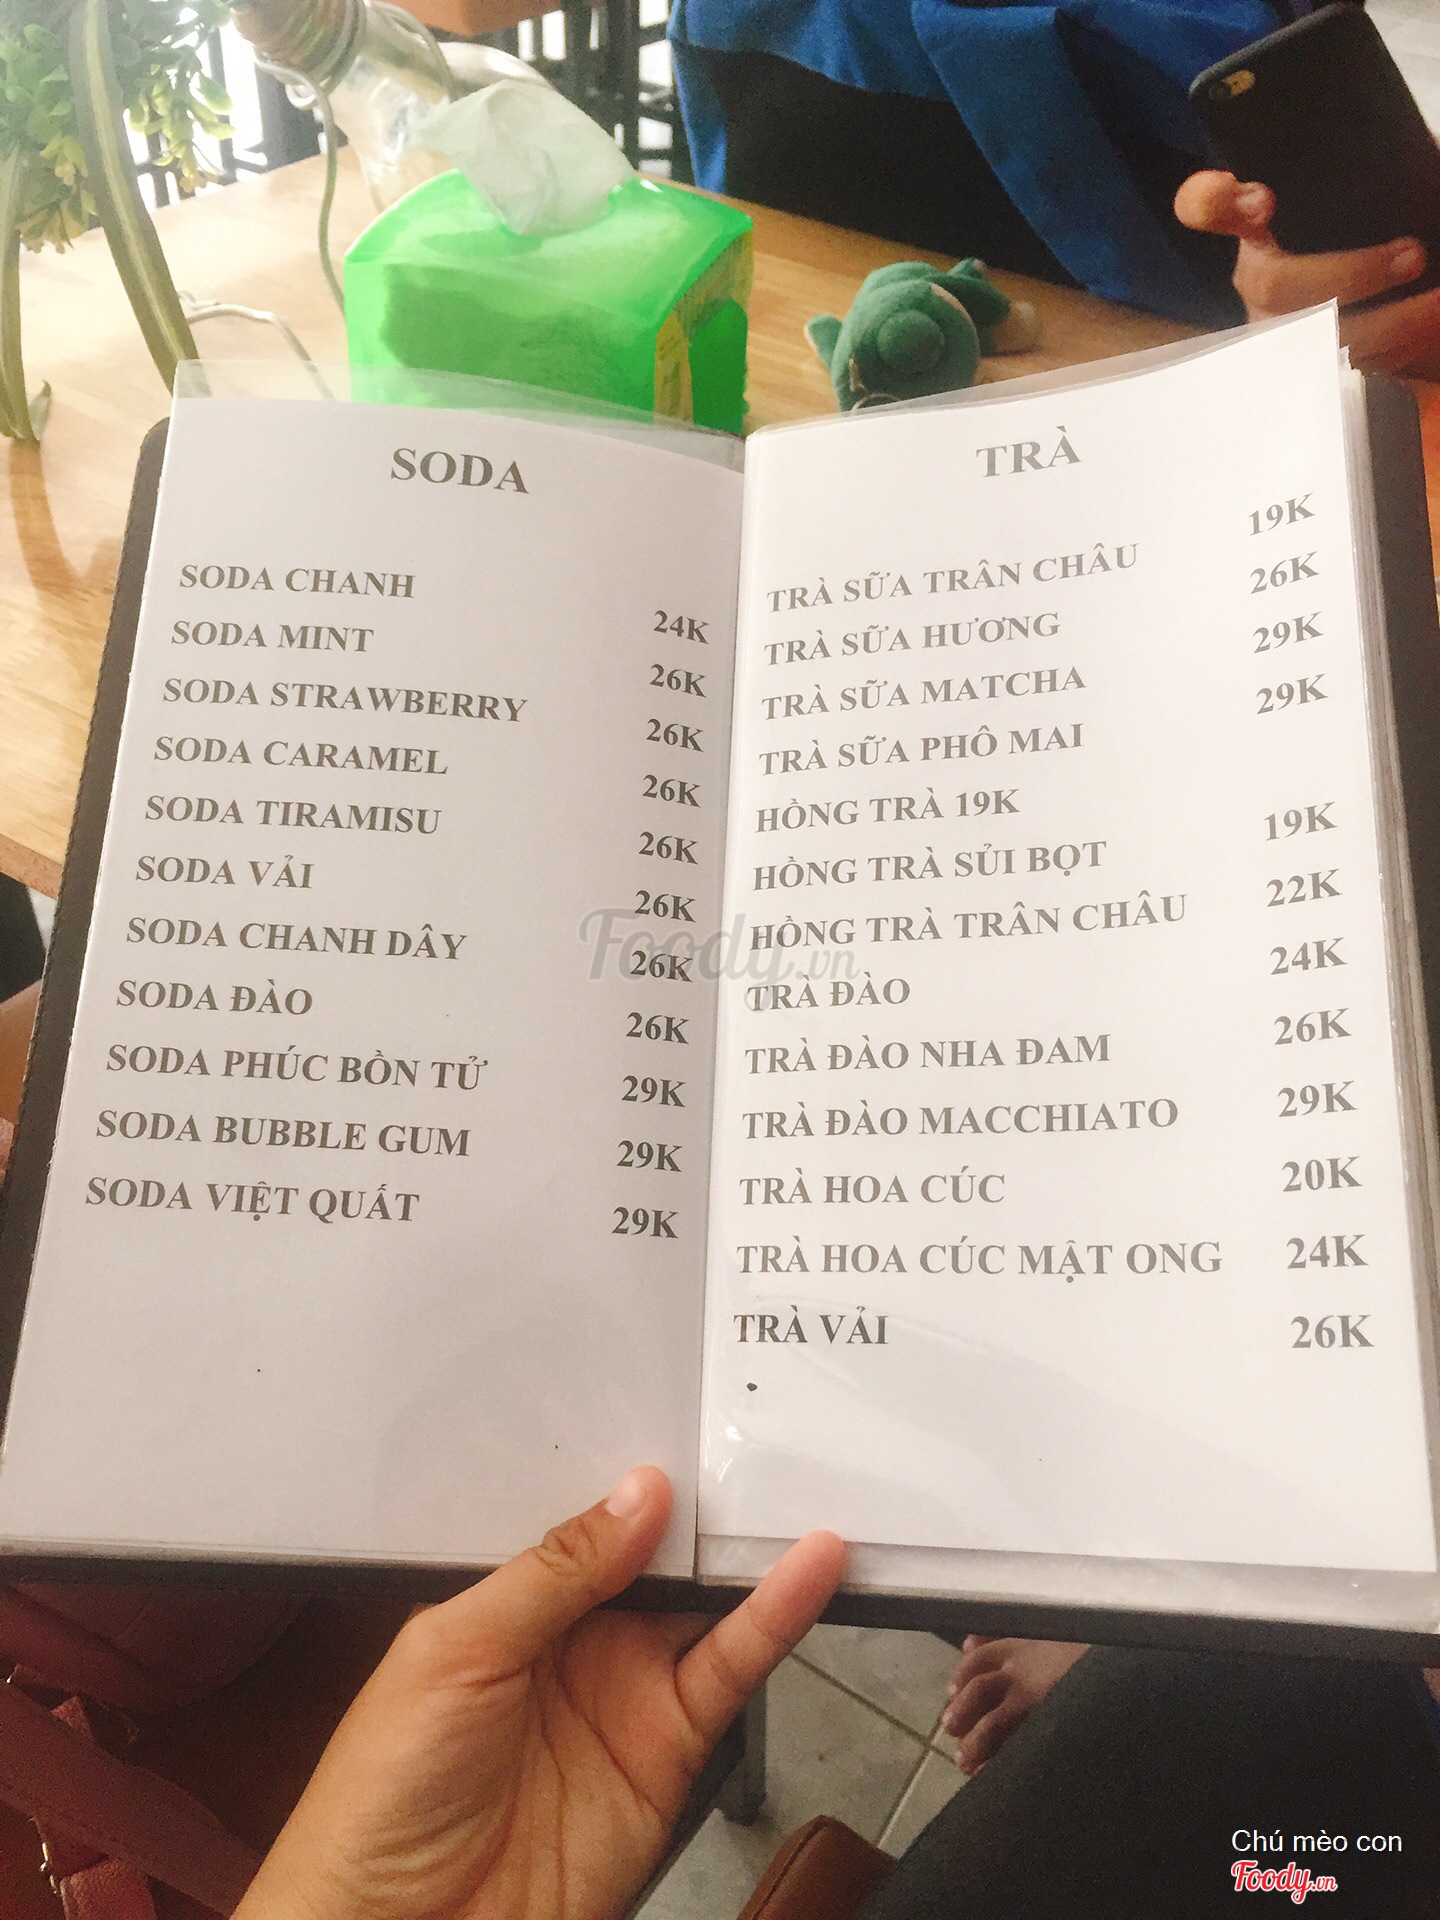 SODA
SODA CHANH 24K
SODA MINT 26K
SODA STRAWBERRY 26K
SODA CARAMEL 26K
SODA TIRAMISU 26K
SODA VẢI 26K
SODA CHANH DÂY 26K
SODA ĐÀO 26K
SODA PHÚC BỒN TỬ 29K
SODA BUBBLE GUM 29K
SODA VIỆT QUẤT 29K
TRÀ
TRÀ SỮA TRÂN CHÂU 19K
TRÀ SỮA HƯƠNG 26K
TRÀ SỮA MATCHA 29K
TRÀ SỮA PHÔ MAI 29K
HỒNG TRÀ 19K
HỒNG TRÀ SỦI BỌT 19K
HỒNG TRÀ TRÂN CHÂU 22K
TRÀ ĐÀO 24K
TRÀ ĐÀO NHA ĐAM 26K
TRÀ ĐÀO MACCHIATO 29K
TRÀ HOA CÚC 20K
TRÀ HOA CÚC MẬT ONG 24K
TRÀ VẢI 26K
Foody.vn
Chú mèo con
Foody.vn